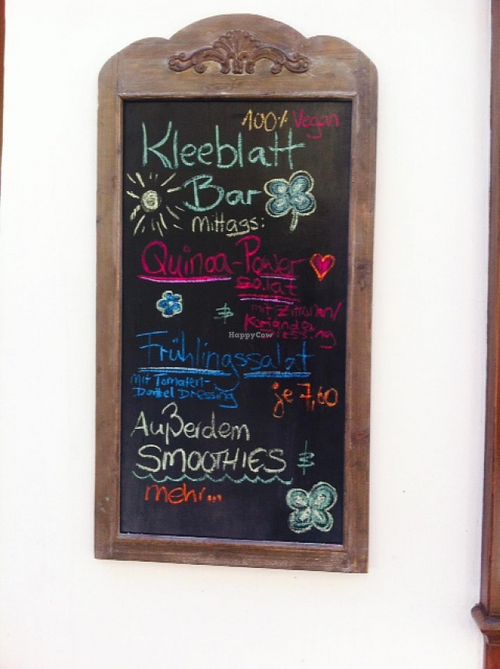 100% Vegan
Kleeblatt
Bar
Mittags:
Quinoa-Power
salat
mit Zitronen/
Koriander
Dressing
&
HappyCow
Frühlingssalat
mit Tomaten-
Dattel Dressing
je 7,60
Außerdem
SMOOTHIES &
mehr...